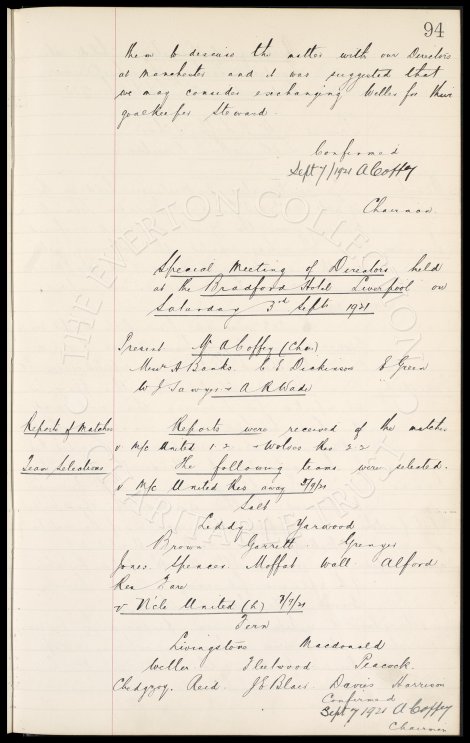 94
them to discuss the matter with our Directors
at Manchester and it was suggested that
we may consider exchanging Weller for their
goalkeeper Steward.
Confirmed
Sept 7/1921 A Coffey
Chairman
Special Meeting of Directors held
at the Bradford Hotel Liverpool on
Saturday 3rd Sept 1921
Present Mr A Coffey (Chair)
Messrs A Banks. C E Dickinson E Green
W J Sawyer & A R Wade
Reports of Matches Reports were received of the matches
v M/c United 1-2 Wolves Res 2-2
Team Selections The following teams were selected.
v M/c United Res away
Salt
Leddy Yarwood
Brown Garrett Grenyer
Jones Spencer Moffat Wall Alford
Res
v N'cle United (h)
Fern
Livingstone Macdonald
Weller Fleetwood Peacock
Chedgzoy. Reid. J E Blair. Davies Harrison
Confirmed
Sept 7 1921 A Coffey
Chairman
THE EVERTON COLLECTION
CHARITABLE TRUST